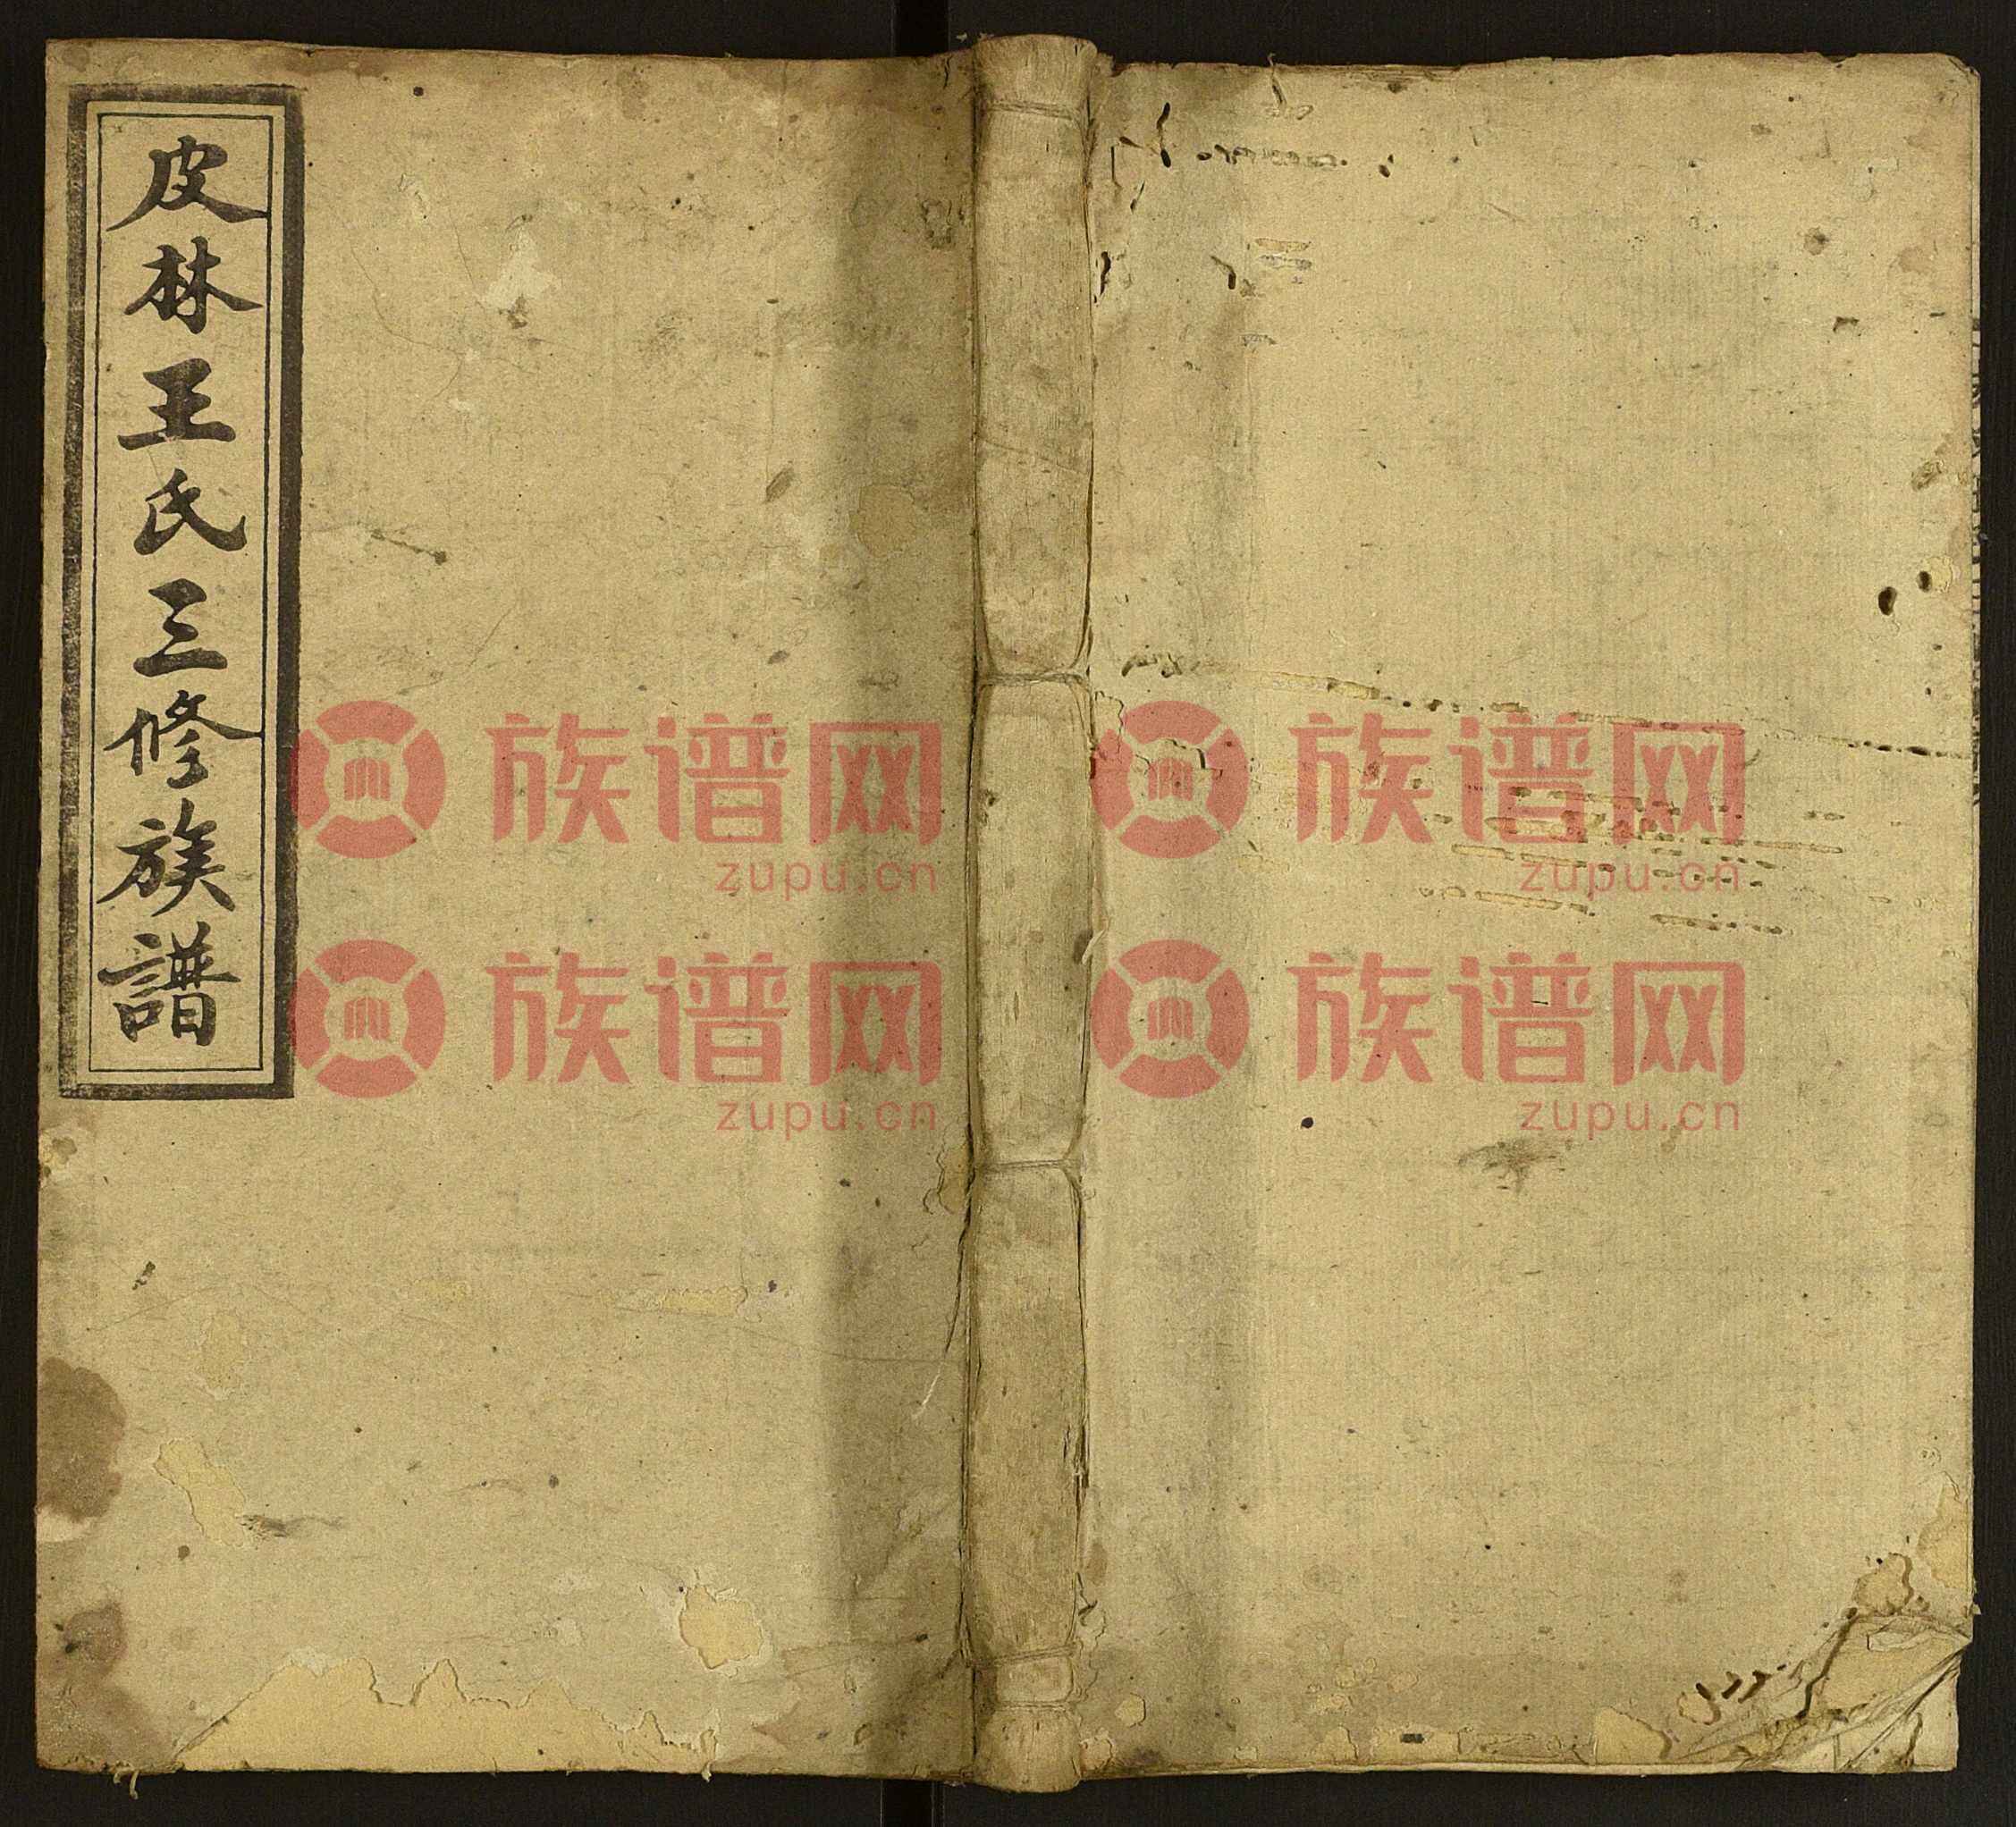 皮林王氏三修族譜
族谱网 族谱网
zupu.cn zupu.cn
族谱网 族谱网
zupu.cn zupu.cn